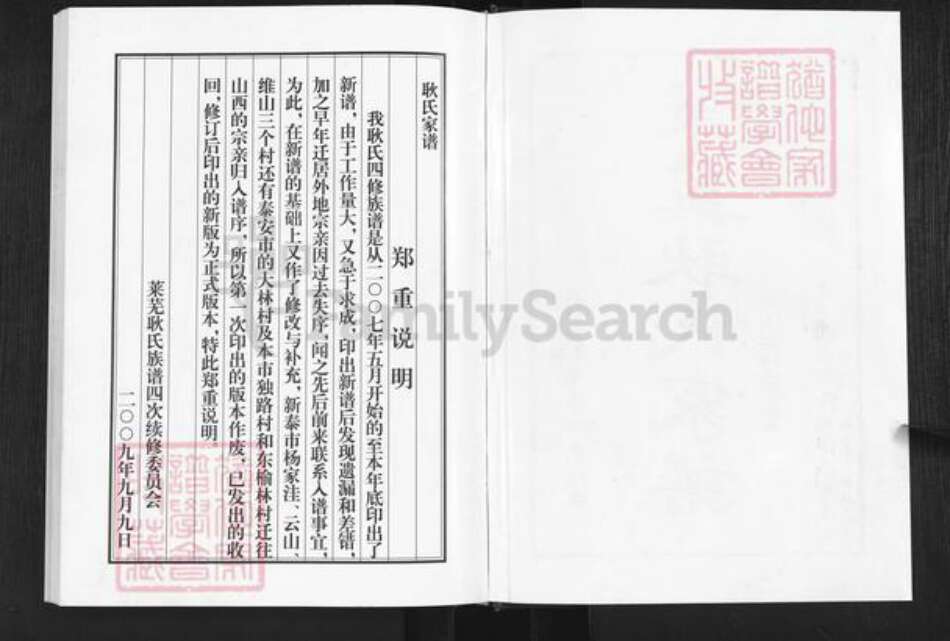 耿氏家谱
郑重说明
我耿氏四修族谱是从二〇〇七年五月开始的至本年底印出了
新谱，由于工作量大，又急于求成，印出新谱后发现遗漏和差错，
加之早年迁居外地宗亲因过去失序，闻之先后前来联系入谱事宜，
为此，在新谱的基础上又作了修改与补充，新泰市杨家洼、云山、
维山三个村还有泰安市的大林村及本市独路村和东榆林村迁往
山西的宗亲归入谱序，所以第一次印出的版本作废，已发出的收
回，修订后印出的新版为正式版本，特此郑重说明。
莱芜耿氏族谱四次续修委员会
二〇〇九年九月九日
FamilySearch